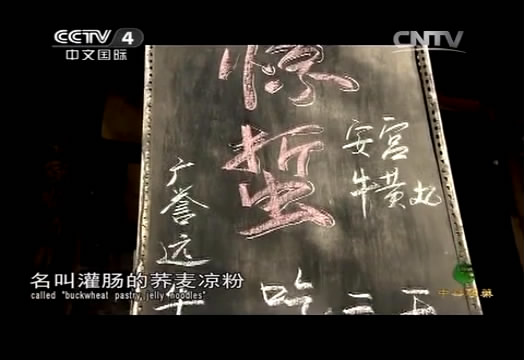 CCTV 4
中文国际
CNTV
惊蜇
安宫
牛黄丸
广誉远
吃
名叫灌肠的荞麦凉粉
called "buckwheat pastry jelly noodles"